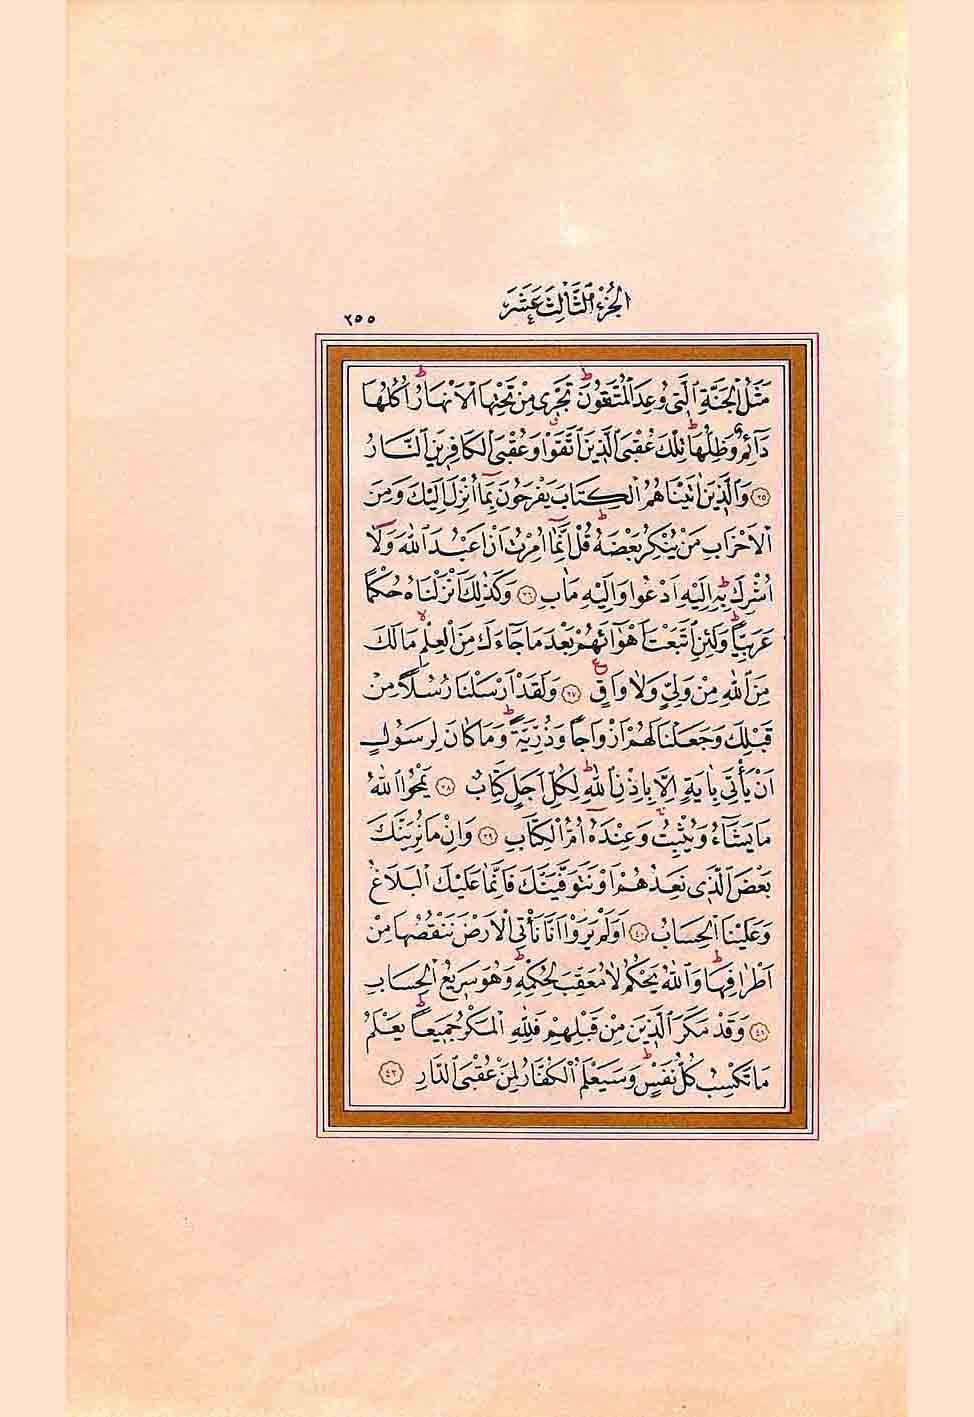 الجُزْءُ الثَّالِثَ عَشَرَ
٢٥٥
مَثَلُ الْجَنَّةِ الَّتِي وُعِدَ الْمُتَّقُونَۜ ط تَجْرِي مِنْ تَحْتِهَا الْاَنْهَارُۜ ط اُكُلُهَا
دَآئِمٌ وَظِلُّهَا ط تِلْكَ عُقْبَى الَّذِينَ اتَّقَوْا ق وَعُقْبَى الْكَافِرِينَ النَّارُ
﴿٣٥﴾ وَالَّذِينَ اٰتَيْنَاهُمُ الْكِتَابَ يَفْرَحُونَ بِمَآ اُنْزِلَ اِلَيْكَ وَمِنَ
الْاَحْزَابِ مَنْ يُنْكِرُ بَعْضَهُ ط قُلْ اِنَّمَآ اُمِرْتُ اَنْ اَعْبُدَ اللّٰهَ وَلَآ
اُشْرِكَ بِهِ ط اِلَيْهِ اَدْعُوا وَاِلَيْهِ مَاٰبِ ﴿٣٦﴾ وَكَذٰلِكَ اَنْزَلْنَاهُ حُكْمًا
عَرَبِيًّا ط وَلَئِنِ اتَّبَعْتَ اَهْوَآءَهُمْ بَعْدَ مَا جَآءَكَ مِنَ الْعِلْمِ لا مَا لَكَ
مِنَ اللّٰهِ مِنْ وَلِيٍّ وَلَا وَاقٍ ع ﴿٣٧﴾ وَلَقَدْ اَرْسَلْنَا رُسُلًا مِنْ
قَبْلِكَ وَجَعَلْنَا لَهُمْ اَزْوَاجًا وَذُرِّيَّةً ط وَمَا كَانَ لِرَسُولٍ
اَنْ يَأْتِيَ بِاٰيَةٍ اِلَّا بِاِذْنِ اللّٰهِ ط لِكُلِّ اَجَلٍ كِتَابٌ ﴿٣٨﴾ يَمْحُوا اللّٰهُ
مَا يَشَآءُ وَيُثْبِتُ وَعِنْدَهُ اُمُّ الْكِتَابِ ﴿٣٩﴾ وَاِنْ مَا نُرِيَنَّكَ
بَعْضَ الَّذِي نَعِدُهُمْ اَوْ نَتَوَفَّيَنَّكَ فَاِنَّمَا عَلَيْكَ الْبَلَاغُ
وَعَلَيْنَا الْحِسَابُ ﴿٤٠﴾ اَوَلَمْ يَرَوْا اَنَّا نَأْتِي الْاَرْضَ نَنْقُصُهَا مِنْ
اَطْرَافِهَا ط وَاللّٰهُ يَحْكُمُ لَا مُعَقِّبَ لِحُكْمِهِ ط وَهُوَ سَرِيعُ الْحِسَابِ
﴿٤١﴾ وَقَدْ مَكَرَ الَّذِينَ مِنْ قَبْلِهِمْ فَلِلّٰهِ الْمَكْرُ جَمِيعًا ط يَعْلَمُ
مَا تَكْسِبُ كُلُّ نَفْسٍ ط وَسَيَعْلَمُ الْكُفَّارُ لِمَنْ عُقْبَى الدَّارِ ﴿٤٢﴾